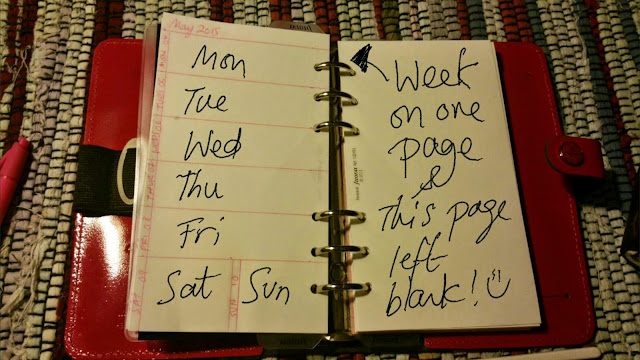 May 2015
Mon
Tue
Wed
Thu
Fri
Sat Sun
Week
on one
page
&
This page
left
blank! :)